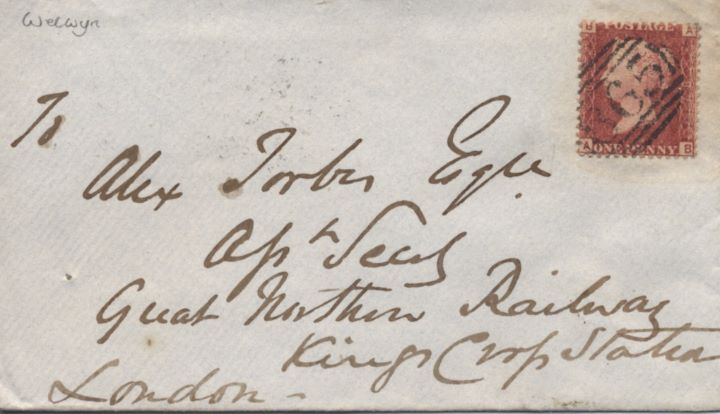 Welwyn
B POSTAGE A
A ONE PENNY B
To
Alex Forbes Esqre
Asst Secy
Great Northern Railway
Kings Cross Station
London -